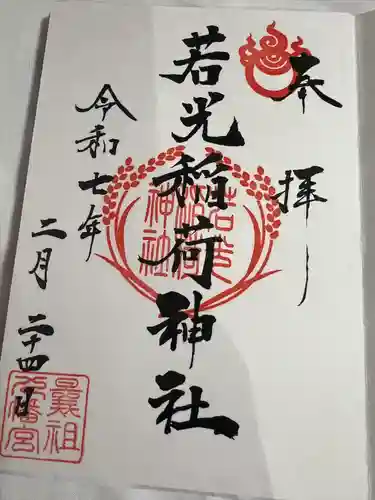 奉拝
若光稲荷神社
令和七年
二月二十四日
若光
稲荷
神社